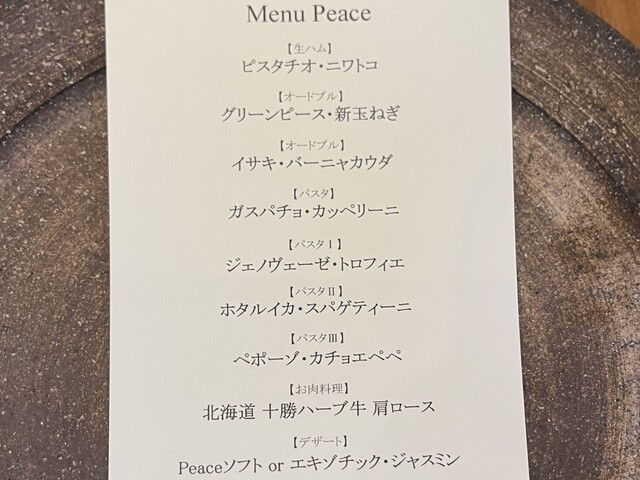 Menu Peace
【生ハム】
ピスタチオ・ニワトコ
【オードブル】
グリーンピース・新玉ねぎ
【オードブル】
イサキ・バーニャカウダ
【パスタ】
ガスパチョ・カッペリーニ
【パスタⅠ】
ジェノヴェーゼ・トロフィエ
【パスタⅡ】
ホタルイカ・スパゲティーニ
【パスタⅢ】
ペポーゾ・カチョエペペ
【お肉料理】
北海道 十勝ハーブ牛 肩ロース
【デザート】
Peaceソフト or エキゾチック・ジャスミン